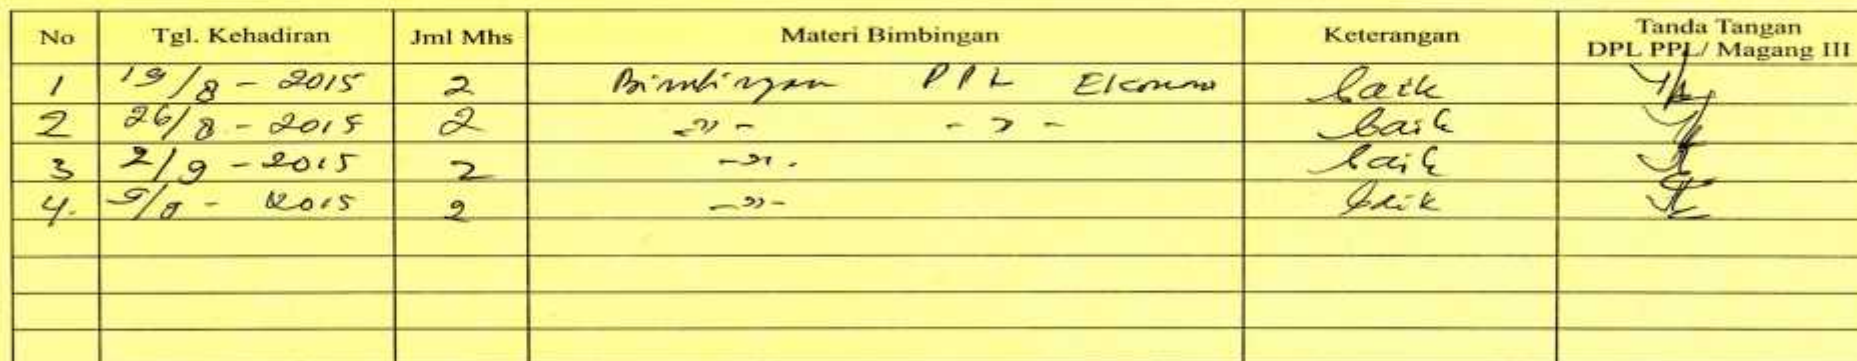 No Tgl. Kehadiran Jml Mhs Materi Bimbingan Keterangan Tanda Tangan DPL PPL/ Magang III
1 19/8 - 2015 2 Bimbingan PPL Ekonomi baik
2 26/8 - 2015 2 -"- -"- baik
3 2/9 - 2015 2 -"- baik
4. 9/9 - 2015 2 -"- baik